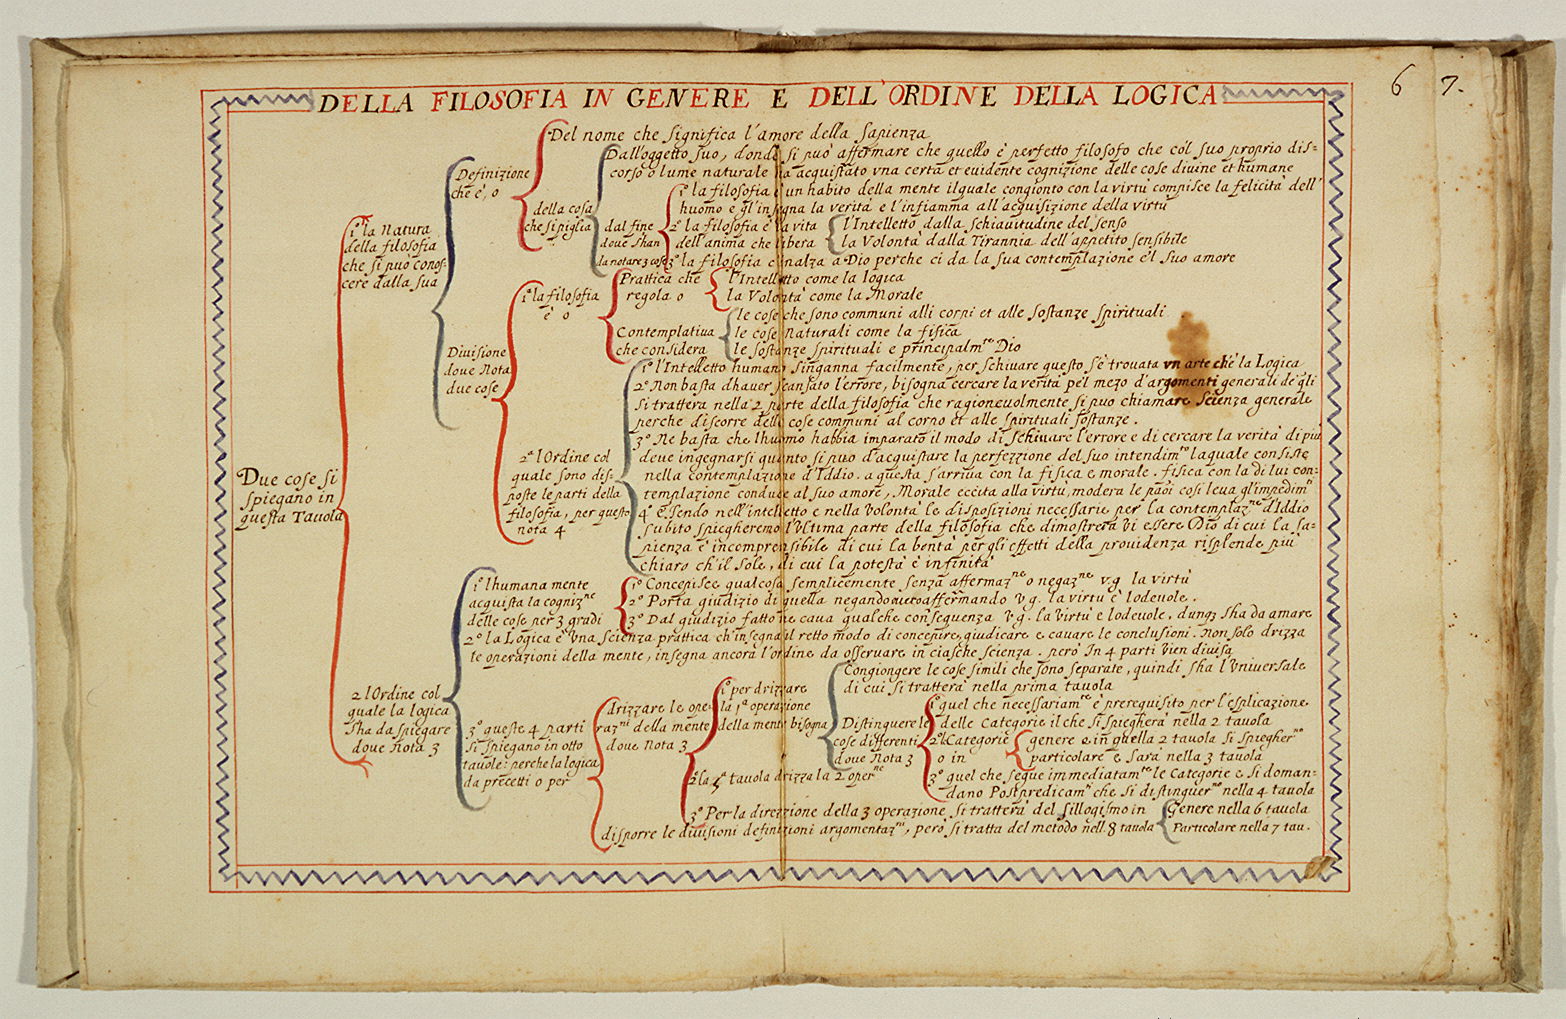 6 7.
DELLA FILOSOFIA IN GENERE E DELL'ORDINE DELLA LOGICA
Due cose si
spiegano in
questa Tauola
1ª la Natura
della filosofia
che si può conos=
cere dalla sua
Definizione
che è, o
Del nome che significa l'amore della sapienza
della cosa
che si piglia
Dall'oggetto suo, donde si può affermare che quello è perfetto filosofo che col suo proprio dis=
corso o lume naturale ha acquistato vna certa et euidente cognizione delle cose diuine et humane
dal fine
doue s'han
da notare 3 cose
1ª la filosofia è un habito della mente il quale congionto con la virtù compisce la felicità dell'
huomo e gl'insegna la verità e l'infiamma all'acquisizione della virtù
2ª la filosofia è la vita
dell'anima che libera
l'Intelletto dalla schiauitudine del senso
la Volontà dalla Tirannia dell'appetito sensibile
3ª la filosofia c'inalza a Dio perche ci da la sua contemplazione e'l suo amore
Diuisione
doue Nota
due cose
1ª la filosofia
è o
Prattica che
regola o
l'Intelletto come la logica
la Volontà come la Morale
Contemplatiua
che considera
le cose che sono communi alli corpi et alle sostanze spirituali
le cose Naturali come la fisica
le sostanze spirituali e principalmte Dio
2ª l'Ordine col
quale sono dis=
poste le parti della
filosofia, per questo
nota 4
1º l'Intelletto humano s'inganna facilmente, per schiuare questo s'è trouata vn arte ch'è la Logica
2º Non basta d'hauer scansato l'errore, bisogna cercare la verità pe'l mezo d'argomenti generali de'gli
si trattera nella 2 parte della filosofia che ragioneuolmente si può chiamare scienza generale
perche discorre delle cose communi al corpo et alle spirituali sostanze.
3º Ne basta che l'huomo habbia imparato il modo di schiuare l'errore e di cercare la verità di più
deue ingegnarsi quanto si può d'acquistare la perfezzione del suo intendimto laquale consiste
nella contemplazione d'Iddio. a questa s'arriua con la fisica e morale. fisica con la di lui con=
templazione conduce al suo amore, Morale eccita alla virtù, modera le paoi così leua gl'impedimti
4º essendo nell'intelletto e nella volontà le disposizioni necessarie per la contemplazne d'Iddio
subito spiegheremo l'Vltima parte della filosofia che dimostrerà vi essere Dio di cui la sa=
pienza è incomprensibile di cui la bontà per gli effetti della prouidenza risplende più
chiaro ch'il sole, di cui la potestà è infinita
2 l'Ordine col
quale la logica
s'ha da spiegare
doue Nota 3
1º l'humana mente
acquista la cognizne
delle cose per 3 gradi
1º Concepisce qualcosa semplicemente senza affermazne o negazne v.g. la virtù
2º Porta giudizio di quella negando affermando v.g. la virtù è lodeuole.
3º Dal giudizio fatto ne caua qualche conseguenza v.g. la virtù e lodeuole, dunq3 s'ha da amare
2º la Logica è vna scienza prattica ch'insegna il retto modo di concepire, giudicare e cauare le conclusioni. Non solo drizza
le operazioni della mente, insegna ancora l'ordine da osseruare in ciasche scienza. però In 4 parti vien diuisa
3º queste 4 parti
si spiegano in otto
tauole: perche la logica
da precetti o per
drizzare le ope=
razni della mente
doue Nota 3
1º per drizzare
la 1ª operazione
della mente bisogna
Congiongere le cose simili che sono separate, quindi s'ha l'vniuersale
di cui si tratterà nella prima tauola
Distinguere le
cose differenti
doue Nota 3
1º quel che necessariamte è prerequisito per l'esplicazione
delle Categorie il che si spiegherà nella 2 tauola
2º le Categorie
o in
genere e in quella 2 tauola si spiegherno
particolare e sarà nella 3 tauola
3º quel che segue immediatamte le Categorie e si doman=
dano Postpredicamti che si distinguerno nella 4 tauola
2º la 5ª tauola drizza la 2 operne
3º Per la direzzione della 3 operazione si tratterà del sillogismo in
Genere nella 6 tauola
Particolare nella 7 tau.
disporre le diuisioni definizioni argomentazni, però si tratta del metodo nell. 8 tauola